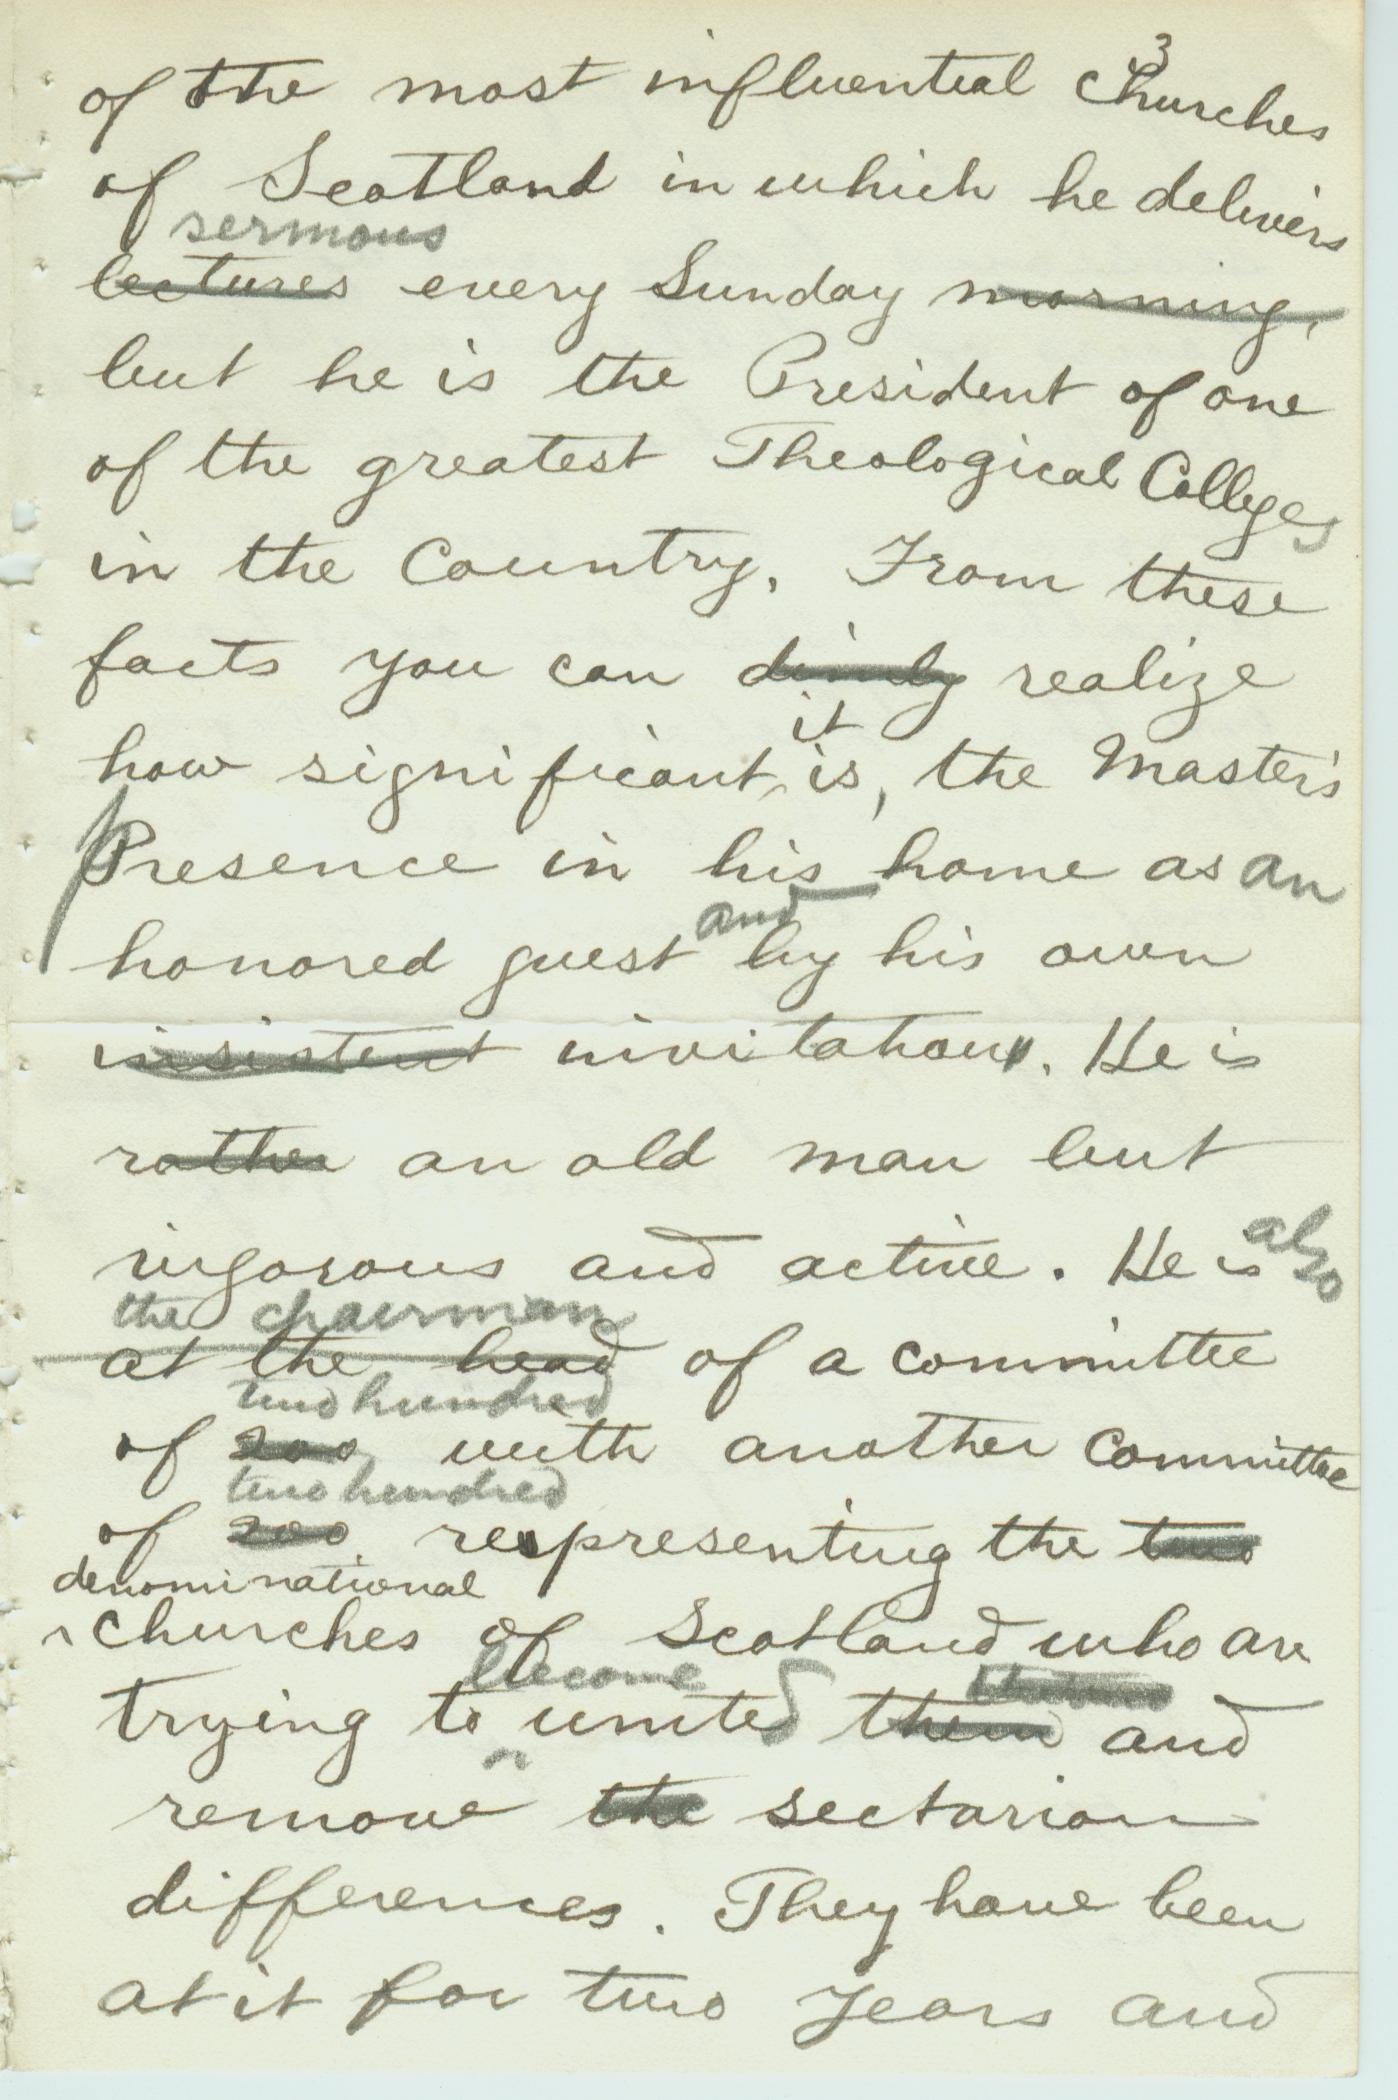 3
of the most influential churches
of Scotland in which he delivers
sermons
lectures every Sunday morning,
but he is the President of one
of the greatest Theological Colleges
in the Country. From these
facts you can dimly realize
it
how significant is, the Master's
Presence in his home as an
and
honored guest by his own
insistent invitation. He is
rather an old man but
also
vigorous and active. He is
the chairman
at the head of a committee
two hundred
of 200 with another Committee
two hundred
of 200 representing the two
denominational
churches of Scotland who are
become
trying to united them and
remove the sectarian
differences. They have been
at it for two years and